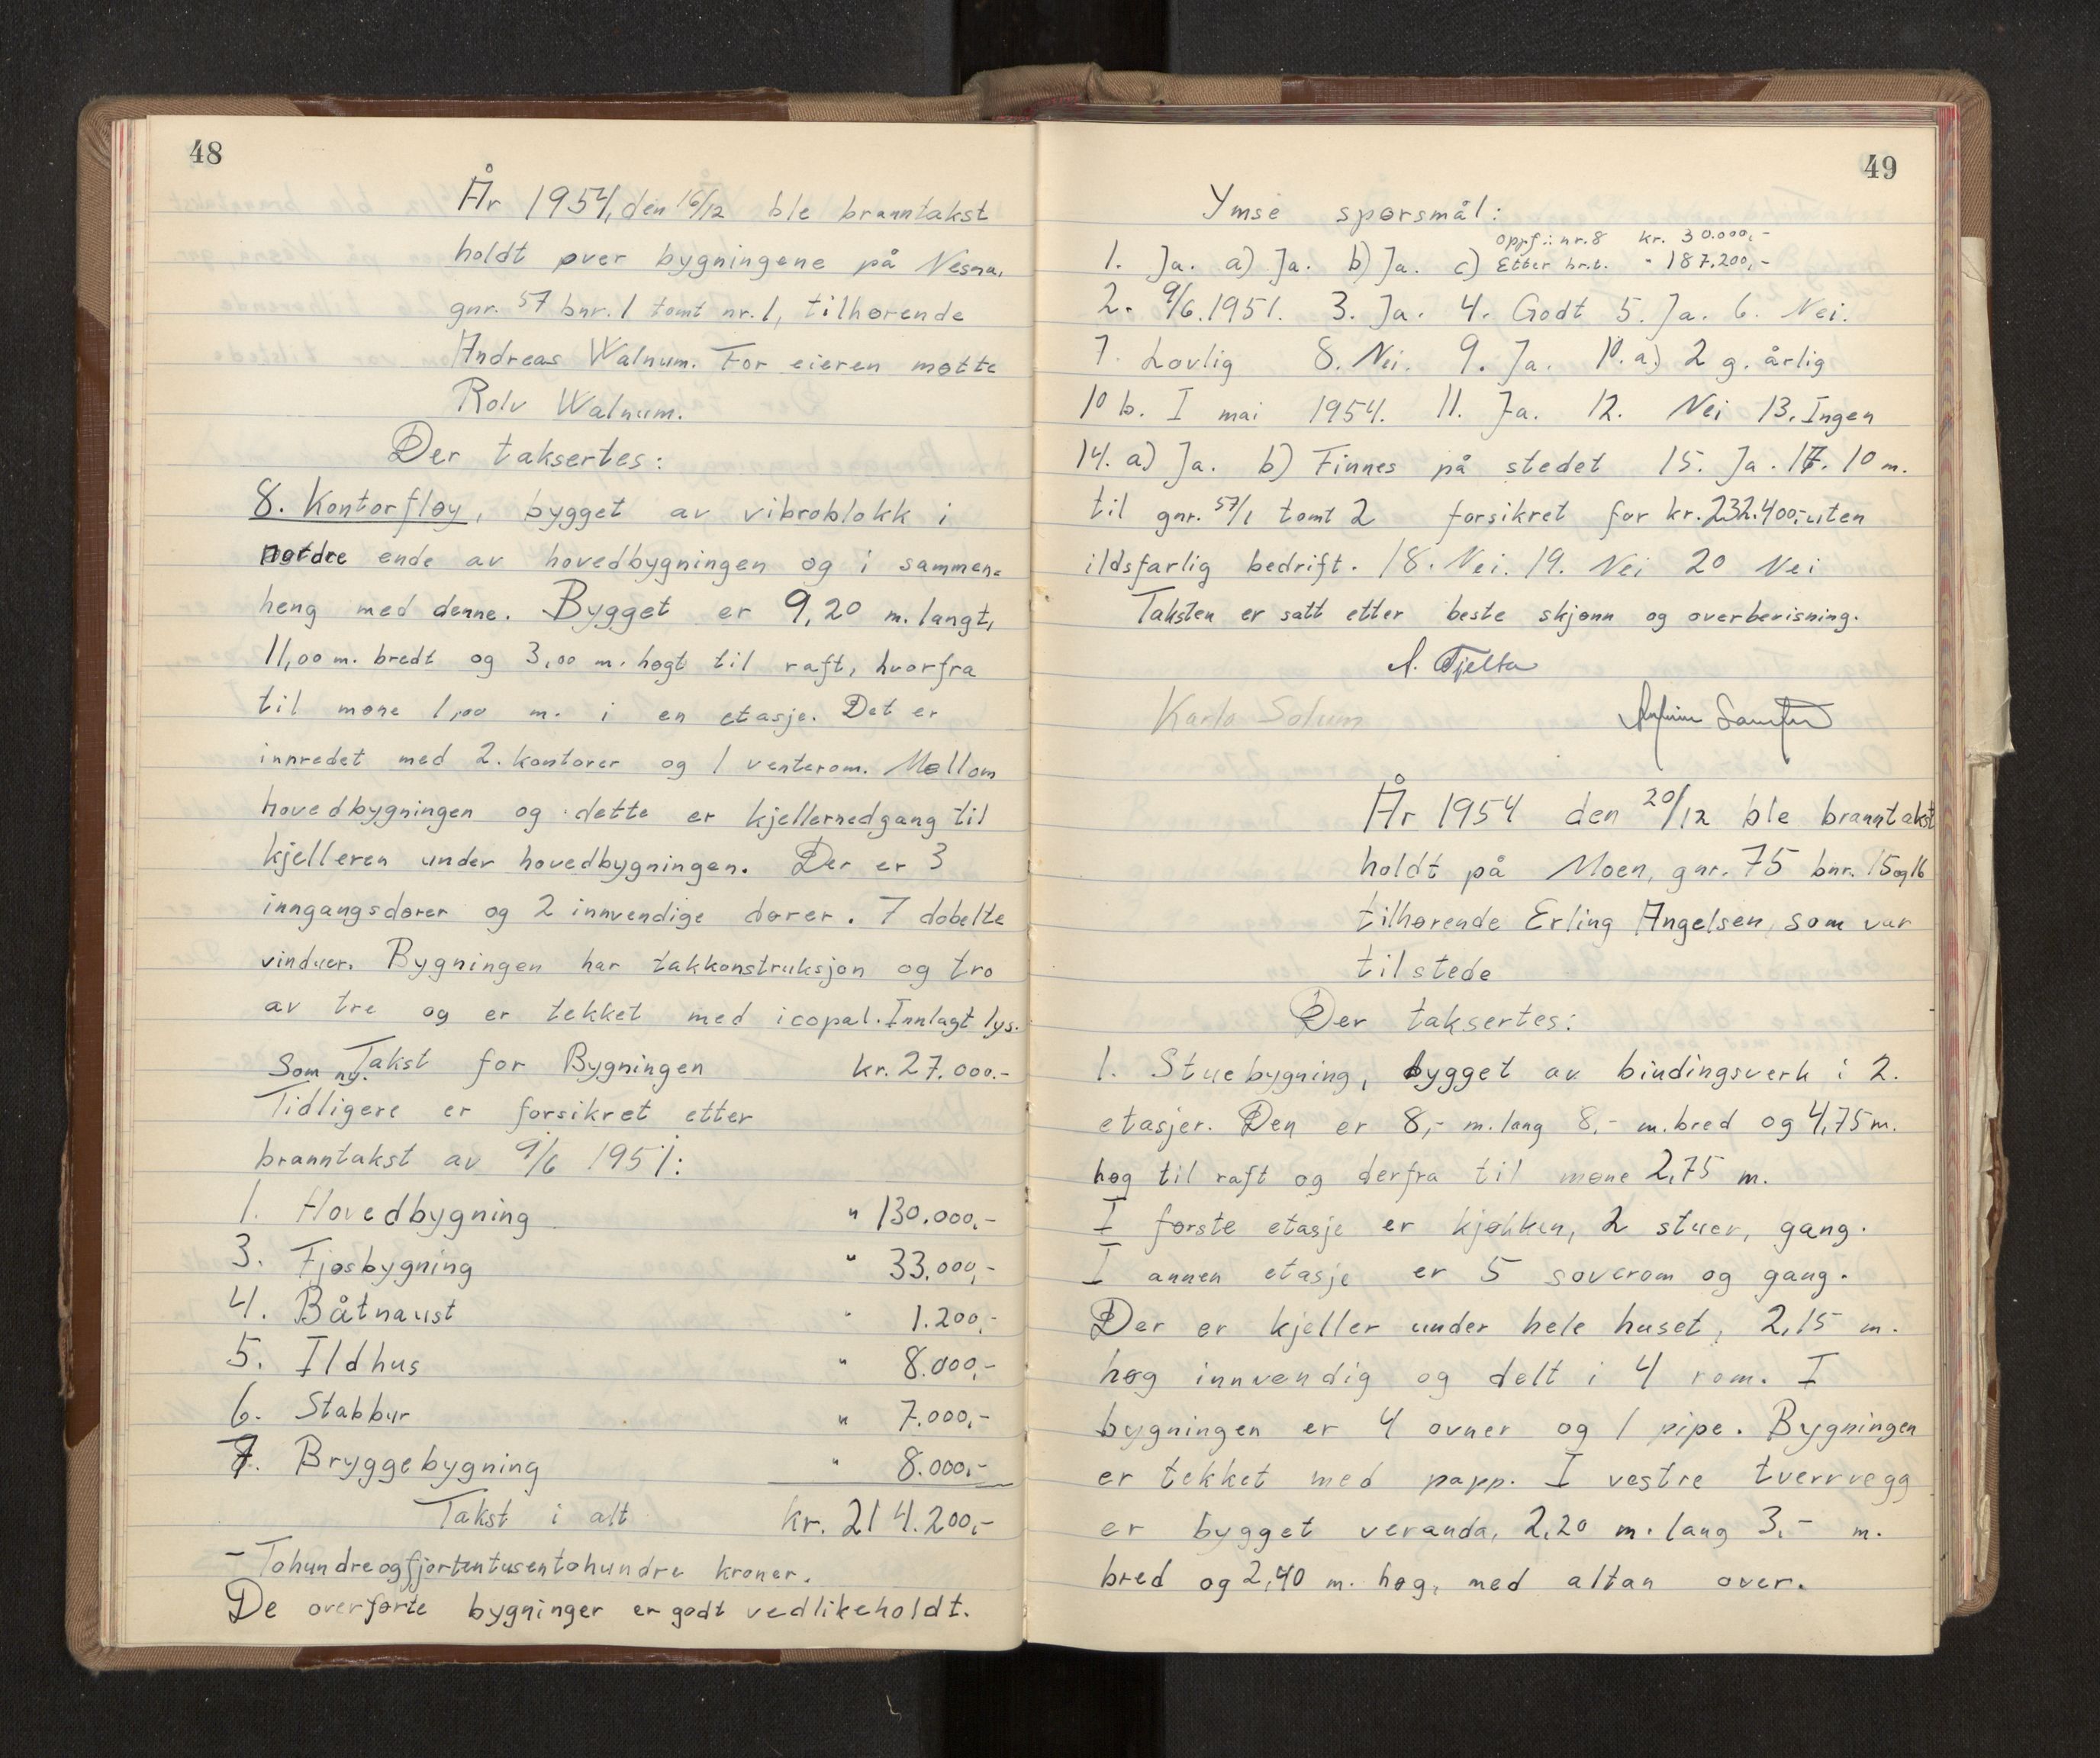 48
År 1954, den 16/12 ble branntakst
holdt over bygningene på Nesna,
gnr. 57 bnr. 1 tomt nr. 1, tilhørende
Andreas Walnum. For eieren møtte
Rolv Walnum.
Der taksertes:
8. Kontorfløy, bygget av vibroblokk i
nordre ende av hovedbygningen og i sammen=
heng med denne. Bygget er 9,20 m. langt,
11,00 m. bredt og 3,00 m. høgt til raft, hvorfra
til møne 1,00 m. i en etasje. Det er
innredet med 2. kontorer og 1 venterom. Mellom
hovedbygningen og dette er kjellernedgang til
kjelleren under hovedbygningen. Der er 3
inngangsdører og 2 innvendige dører. 7 dobelte
vinduer. Bygningen har takkonstruksjon og tro
av tre og er tekket med icopal. Innlagt lys.
Som ny. Takst for Bygningen kr. 27.000.-
Tidligere er forsikret etter
branntakst av 9/6 1951:
1. Hovedbygning " 130.000,-
3. Fjøsbygning " 33.000,-
4. Båtnaust " 1.200,-
5. Ildhus " 8.000,-
6. Stabbur " 7.000,-
7. Bryggebygning " 8.000,-
Takst i alt kr. 214.200,-
- Tohundreogfjortentusentohundre kroner.
De overførte bygninger er godt vedlikeholdt.
49
Ymse spørsmål:
Oppf.: nr. 8 kr. 30.000,-
1. Ja. a) Ja. b) Ja. c) Etter br.t. " 187.200,-
2. 9/6.1951. 3. Ja. 4. Godt 5. Ja. 6. Nei.
7. Lovlig 8. Nei. 9. Ja. 10. a) 2 g. årlig
10 b. I mai 1954. 11. Ja. 12. Nei 13. Ingen
14. a) Ja. b) Finnes på stedet 15. Ja. 17. 10 m.
til gnr. 57/1 tomt 2 forsikret for kr. 232.400,- uten
ildsfarlig bedrift. 18. Nei. 19. Nei 20 Nei
Taksten er satt etter beste skjønn og overbevisning.
A. Fjelta
Karlo Solum
År 1954 den 20/12 ble branntakst
holdt på Moen, gnr. 75 bnr. 15 og 16
tilhørende Erling Angelsen, som var
tilstede
Der taksertes:
1. Stuebygning, bygget av bindingsverk i 2.
etasjer. Den er 8,- m. lang 8,- m. bred og 4,75 m.
høg til raft og derfra til møne 2,75 m.
I første etasje er kjøkken, 2 stuer, gang.
I annen etasje er 5 soverom og gang.
Der er kjeller under hele huset, 2,15 m.
høg innvendig og delt i 4 rom. I
bygningen er 4 ovner og 1 pipe. Bygningen
er tekket med papp. I vestre tverrvegg
er bygget veranda, 2,20 m. lang 3,- m.
bred og 2,40 m. høg, med altan over.